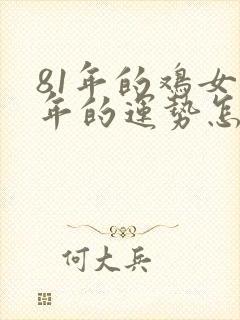 81年的鸡女
年的运势怎
何大兵